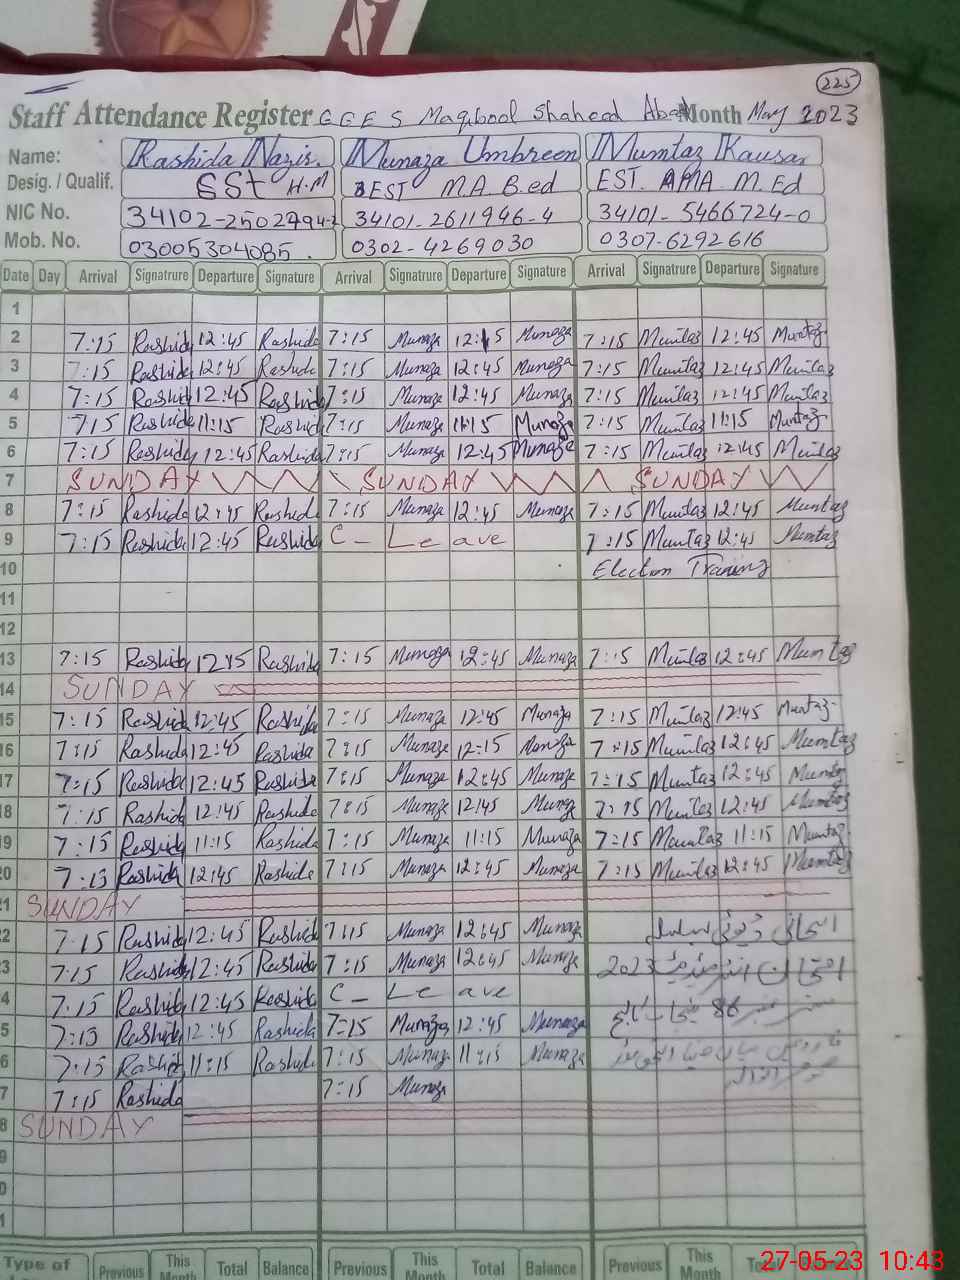 225
Staff Attendance Register G G E S Maqbool Shaheed Abad Month May 2023
Name: Rashida Nazir. Munaza Umbreen Mumtaz Kausar
Desig. / Qualif. SSt H.M EST M.A B.ed EST. MA M. Ed
NIC No. 34101-2611946-4 34101-5466724-0
Mob. No. 03005304085. 0302-4269030 0307-6292616
Date Day Arrival Signatrure Departure Signature Arrival Signatrure Departure Signature Arrival Signatrure Departure Signature
1
2 7:15 Rashida 12:45 Rashida 7:15 Munaza 12:45 Munaza 7:15 Mumtaz 12:45 Mumtaz
3 7:15 Rashida 12:45 Rashida 7:15 Munaza 12:45 Munaza 7:15 Mumtaz 12:45 Mumtaz
4 7:15 Rashida 12:45 Rashida 7:15 Munaza 12:45 Munaza 7:15 Mumtaz 12:45 Mumtaz
5 7:15 Rashida 11:15 Rashida 7:15 Munaza 11:15 Munaza 7:15 Mumtaz 11:15 Mumtaz
6 7:15 Rashida 12:45 Rashida 7:15 Munaza 12:45 Munaza 7:15 Mumtaz 12:45 Mumtaz
7 SUNDAY SUNDAY SUNDAY
8 7:15 Rashida 12:45 Rashida 7:15 Munaza 12:45 Munaza 7:15 Mumtaz 12:45 Mumtaz
9 7:15 Rashida 12:45 Rashida C - Leave 7:15 Mumtaz 12:45 Mumtaz
10 Election Traning
11
12
13 7:15 Rashida 12:45 Rashida 7:15 Munaza 12:45 Munaza 7:15 Mumtaz 12:45 Mumtaz
14 SUNDAY
15 7:15 Rashida 12:45 Rashida 7:15 Munaza 12:45 Munaza 7:15 Mumtaz 12:45 Mumtaz
16 7:15 Rashida 12:45 Rashida 7:15 Munaza 12:15 Munaza 7:15 Mumtaz 12:45 Mumtaz
17 7:15 Rashida 12:45 Rashida 7:15 Munaza 12:45 Munaza 7:15 Mumtaz 12:45 Mumtaz
18 7:15 Rashida 12:45 Rashida 7:15 Munaza 12:45 Munaza 7:15 Mumtaz 12:45 Mumtaz
19 7:15 Rashida 11:15 Rashida 7:15 Munaza 11:15 Munaza 7:15 Mumtaz 11:15 Mumtaz
20 7:15 Rashida 12:45 Rashida 7:15 Munaza 12:45 Munaza 7:15 Mumtaz 12:45 Mumtaz
1 SUNDAY
2 7:15 Rashida 12:45 Rashida 7:15 Munaza 12:45 Munaza امتحانی ڈیوٹی بسلسلہ
3 7:15 Rashida 12:45 Rashida 7:15 Munaza 12:45 Munaza امتحان انٹرمیڈیٹ 2023
4 7:15 Rashida 12:45 Rashida C - Leave سنٹر نمبر 86
5 7:15 Rashida 12:45 Rashida 7:15 Munaza 12:45 Munaza
6 7:15 Rashida 11:15 Rashida 7:15 Munaza 11:15 Munaza
7 7:15 Rashida 7:15 Munaza
8 SUNDAY
9
0
1
Type of Previous This Month Total Balance Previous This Month Total Balance Previous This Month Total
27-05-23 10:43